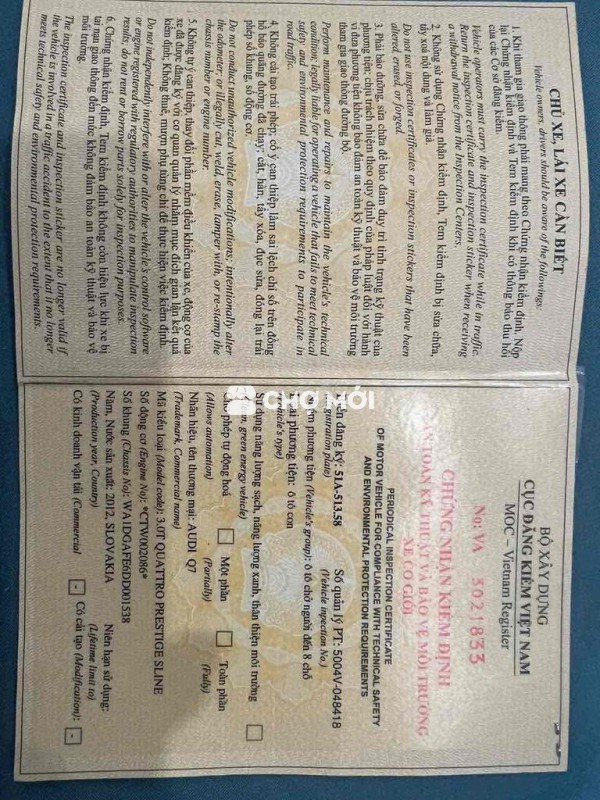 CHỦ XE, LÁI XE CẦN BIẾT
Vehicle owners, drivers should be aware of the followings:
1. Khi tham gia giao thông phải mang theo Chứng nhận kiểm định; Nộp
lại Chứng nhận kiểm định và Tem kiểm định khi có thông báo thu hồi
của các Cơ sở đăng kiểm.
Vehicle operators must carry the inspection certificate while in traffic.
Return the inspection certificate and inspection sticker when receiving
a withdrawal notice from the Inspection Centers.
2. Không sử dụng Chứng nhận kiểm định, Tem kiểm định bị sửa chữa,
tẩy xoá nội dung và làm giả.
Do not use inspection certificates or inspection stickers that have been
altered, erased, or forged.
3. Phải bảo dưỡng, sửa chữa để bảo đảm duy trì tình trạng kỹ thuật của
phương tiện; chịu trách nhiệm theo quy định của pháp luật đối với hành
vi đưa phương tiện không bảo đảm an toàn kỹ thuật và bảo vệ môi trường
tham gia giao thông đường bộ.
Perform maintenance and repairs to maintain the vehicle's technical
condition; legally liable for operating a vehicle that fails to meet technical
safety and environmental protection requirements to participate in
road traffic.
4. Không cải tạo trái phép; cố ý can thiệp làm sai lệch chỉ số trên đồng
hồ báo quãng đường đã chạy; cắt, hàn, tẩy xóa, đục sửa, đóng lại trái
phép số khung, số động cơ.
Do not conduct unauthorized vehicle modifications; intentionally alter
the odometer; or illegally cut, weld, erase, tamper with, or re-stamp the
chassis number or engine number.
5. Không tự ý can thiệp, thay đổi phần mềm điều khiển của xe, động cơ của
xe đã được đăng ký với cơ quan quản lý nhằm mục đích gian lận kết quả
kiểm định; Không thuê, mượn phụ tùng chỉ để thực hiện việc kiểm định.
Do not independently interfere with or alter the vehicle's control software
or engine registered with regulatory authorities to manipulate inspection
results; do not rent or borrow parts solely for inspection purposes.
6. Chứng nhận kiểm định, Tem kiểm định không còn hiệu lực khi xe bị
tai nạn giao thông đến mức không đảm bảo an toàn kỹ thuật và bảo vệ
môi trường.
The inspection certificate and inspection sticker are no longer valid if
the vehicle is involved in a traffic accident to the extent that it no longer
meets technical safety and environmental protection requirements.
BỘ XÂY DỰNG
CỤC ĐĂNG KIỂM VIỆT NAM
MOC – Vietnam Register
No: VA 3021833
CHỨNG NHẬN KIỂM ĐỊNH
AN TOÀN KỸ THUẬT VÀ BẢO VỆ MÔI TRƯỜNG
XE CƠ GIỚI
PERIODICAL INSPECTION CERTIFICATE
OF MOTOR VEHICLE FOR COMPLIANCE WITH TECHNICAL SAFETY
AND ENVIRONMENTAL PROTECTION REQUIREMENTS
Biển đăng ký: 51A-513.58 Số quản lý PT: 5004V-048418
(Registration plate) (Vehicle inpection No.)
phương tiện (Vehicle's group): ô tô chở người đến 8 chỗ
Loại phương tiện: ô tô con
(Vehicle's type)
Sử dụng năng lượng sạch, năng lượng xanh, thân thiện môi trường
green energy vehicle)
Cho phép tự động hoá Một phần Toàn phần
(Allows automation) (Partially) (Fully)
Nhãn hiệu, tên thương mại: AUDI Q7
(Trademark, Commercial name)
Mã kiểu loại (Model code): 3.0T QUATTRO PRESTIGE SLINE
Số động cơ (Engine No): *CTW002086*
Số khung (Chassis No): WA1DGAFE6DD001538
Năm, Nước sản xuất: 2012, SLOVAKIA Niên hạn sử dụng:
(Production year, Country) (Lifetime limit to)
Có kinh doanh vận tải (Commercial - Có cải tạo (Modification): -
CHỢ MỚI